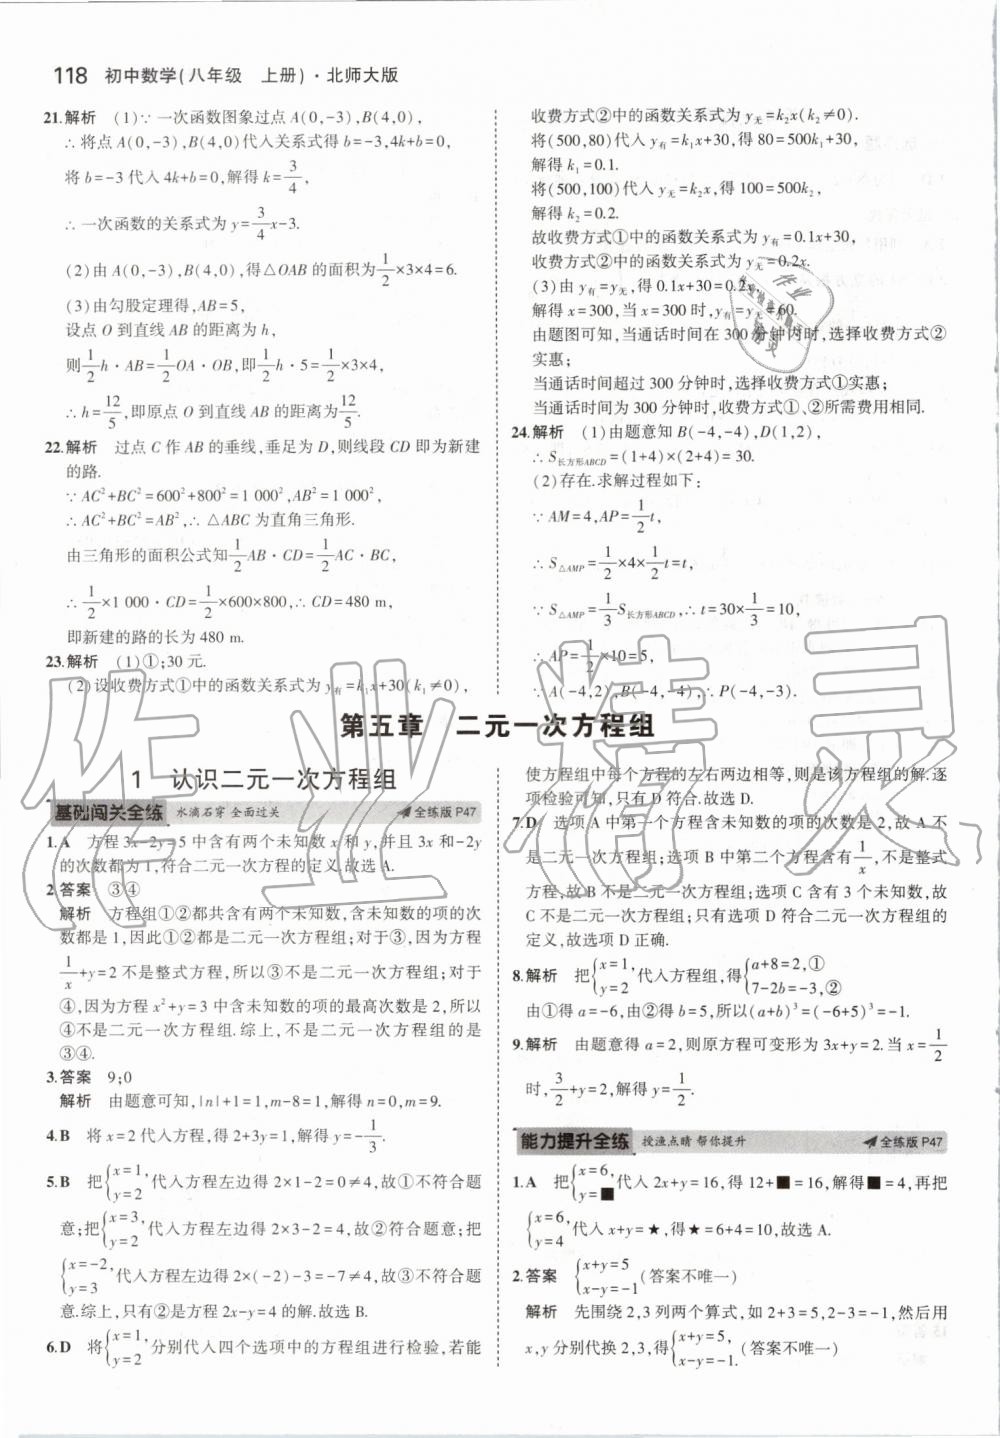 118 初中数学(八年级 上册)·北师大版
21.解析 (1)∵一次函数图象过点A(0,-3),B(4,0),
∴将点A(0,-3),B(4,0)代入关系式得b=-3,4k+b=0,
将b=-3代入4k+b=0,解得k=3/4,
∴一次函数的关系式为y=3/4x-3.
(2)由A(0,-3),B(4,0),得△OAB的面积为1/2×3×4=6.
(3)由勾股定理得,AB=5,
设点O到直线AB的距离为h,
则1/2h·AB=1/2OA·OB,即1/2h·5=1/2×3×4,
∴h=12/5,即原点O到直线AB的距离为12/5.
22.解析 过点C作AB的垂线,垂足为D,则线段CD即为新建
的路.
∵AC²+BC²=600²+800²=1 000²,AB²=1 000²,
∴AC²+BC²=AB²,∴△ABC为直角三角形.
由三角形的面积公式知1/2AB·CD=1/2AC·BC,
∴1/2×1 000·CD=1/2×600×800,∴CD=480 m.
即新建的路的长为480 m.
23.解析 (1)①;30元.
(2)设收费方式①中的函数关系式为y有=k₁x+30(k₁≠0),
收费方式②中的函数关系式为y无=k₂x(k₂≠0).
将(500,80)代入y有=k₁x+30,得80=500k₁+30,
解得k₁=0.1.
将(500,100)代入y无=k₂x,得100=500k₂,
解得k₂=0.2.
故收费方式①中的函数关系式为y有=0.1x+30,
收费方式②中的函数关系式为y无=0.2x.
(3)由y有=y无,得0.1x+30=0.2x,
解得x=300,当x=300时,y有=y无=60.
由题图可知,当通话时间在300分钟内时,选择收费方式②
实惠;
当通话时间超过300分钟时,选择收费方式①实惠;
当通话时间为300分钟时,收费方式①、②所需费用相同.
24.解析 (1)由题意知B(-4,-4),D(1,2),
∴S长方形ABCD=(1+4)×(2+4)=30.
(2)存在.求解过程如下:
∵AM=4,AP=1/2t,
∴S△AMP=1/2×4×1/2t=t,
∵S△AMP=1/3S长方形ABCD,∴t=30×1/3=10,
∴AP=1/2×10=5,
∵A(-4,2),B(-4,-4),∴P(-4,-3).
第五章 二元一次方程组
1 认识二元一次方程组
基础闯关全练 水滴石穿 全面过关 全练版P47
1.A 方程3x-2y=5中含有两个未知数x和y,并且3x和-2y
的次数都为1,符合二元一次方程的定义.故选A.
2.答案 ③④
解析 方程组①②都共含有两个未知数,含未知数的项的次
数都是1,因此①②都是二元一次方程组;对于③,因为方程
1/x+y=2不是整式方程,所以③不是二元一次方程组;对于
④,因为方程x²+y=3中含未知数的项的最高次数是2,所以
④不是二元一次方程组.综上,不是二元一次方程组的是
③④.
3.答案 9;0
解析 由题意可知,|n|+1=1,m-8=1,解得n=0,m=9.
4.B 将x=2代入方程,得2+3y=1,解得y=-1/3.
5.B 把{x=1, y=2代入方程左边得2×1-2=0≠4,故①不符合题
意;把{x=3, y=2代入方程左边得2×3-2=4,故②符合题意;把
{x=-2, y=3代入方程左边得2×(-2)-3=-7≠4,故③不符合题
意.综上,只有②是方程2x-y=4的解.故选B.
6.D 将{x=1, y=2分别代入四个选项中的方程组进行检验,若能
使方程组中每个方程的左右两边相等,则是该方程组的解.逐
项检验可知,只有选项D符合,故选D.
7.D 选项A中第一个方程含未知数的项的次数是2,故A不
是二元一次方程组;选项B中第二个方程含有1/x,不是整式
方程,故B不是二元一次方程组;选项C含有3个未知数,故
C不是二元一次方程组;只有选项D符合二元一次方程组的
定义,故选项D正确.
8.解析 把{x=1, y=2代入方程组,得{a+8=2,① 7-2b=-3,②
由①得a=-6,由②得b=5,所以(a+b)³=(-6+5)³=-1.
9.解析 由题意得a=2,则原方程可变形为3x+y=2.当x=1/2
时,3/2+y=2,解得y=1/2.
能力提升全练 授渔点睛 帮你提升 全练版P47
1.A 把{x=6, y=■代入2x+y=16,得12+■=16,解得■=4,再把
{x=6, y=4代入x+y=★,得★=6+4=10,故选A.
2.答案 {x+y=5 x-y=-1(答案不唯一)
解析 先围绕2,3列两个算式,如2+3=5,2-3=-1,然后用
x,y分别代换2,3,得{x+y=5, x-y=-1.(答案不唯一)
作业精灵